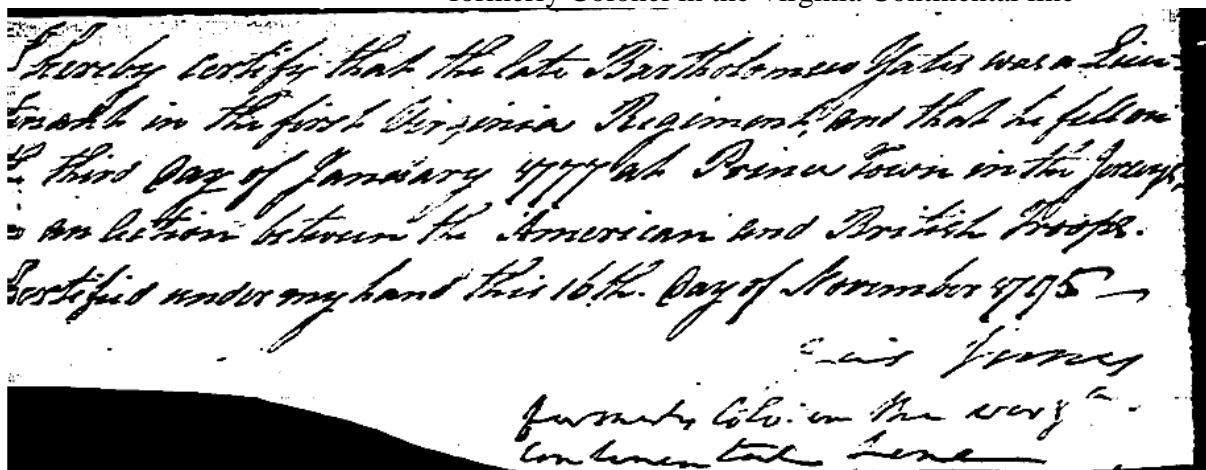 formerly Colonel in the Virginia Continental line
I hereby certify that the late Bartholomew Yates was a Lieu-
tenant in the first Virginia Regiment, and that he fell on
the third Day of January 1777 at Prince Town in the Jerseys,
an Action between the American and British Troops.
Certified under my hand this 16th. Day of November 1795 —
formerly Colo. in the Virg
Continental Line